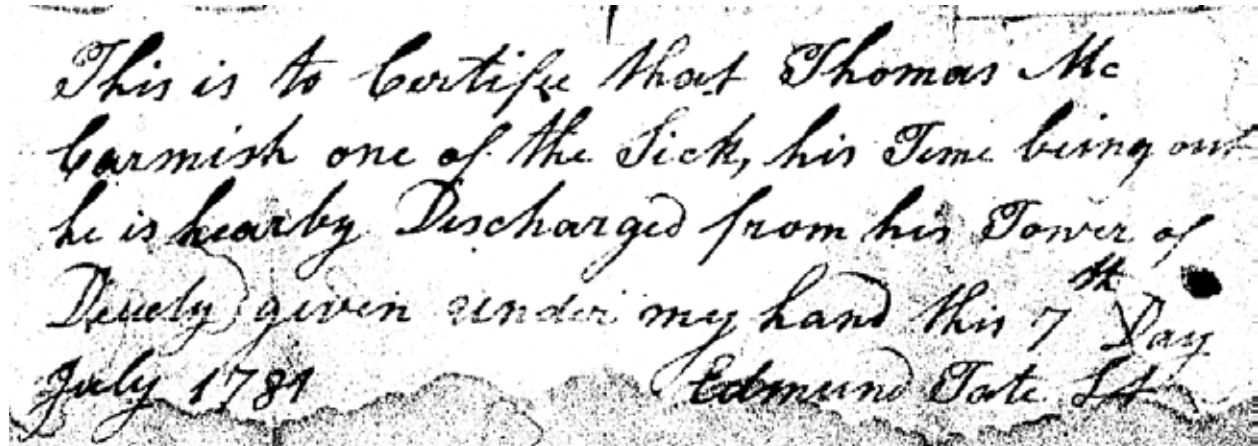 This is to Certifie that Thomas Mc
Carmish one of the Sick, his Time being out
he is hearby Discharged from his Tower of
Deuely given under my hand this 7th Day
July 1781
Edmund Tate Lt